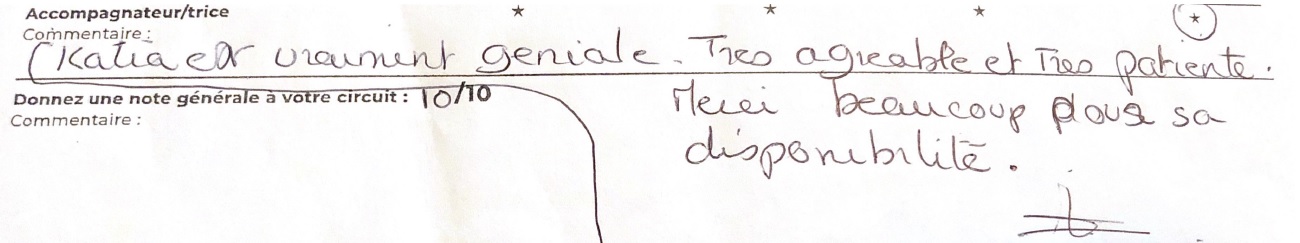 Accompagnateur/trice
Commentaire :
Katia est vraiment geniale. Tres agreable et Tres patiente.
Donnez une note générale à votre circuit : 10/10
Merci beaucoup pour sa
Commentaire :
disponibilité.